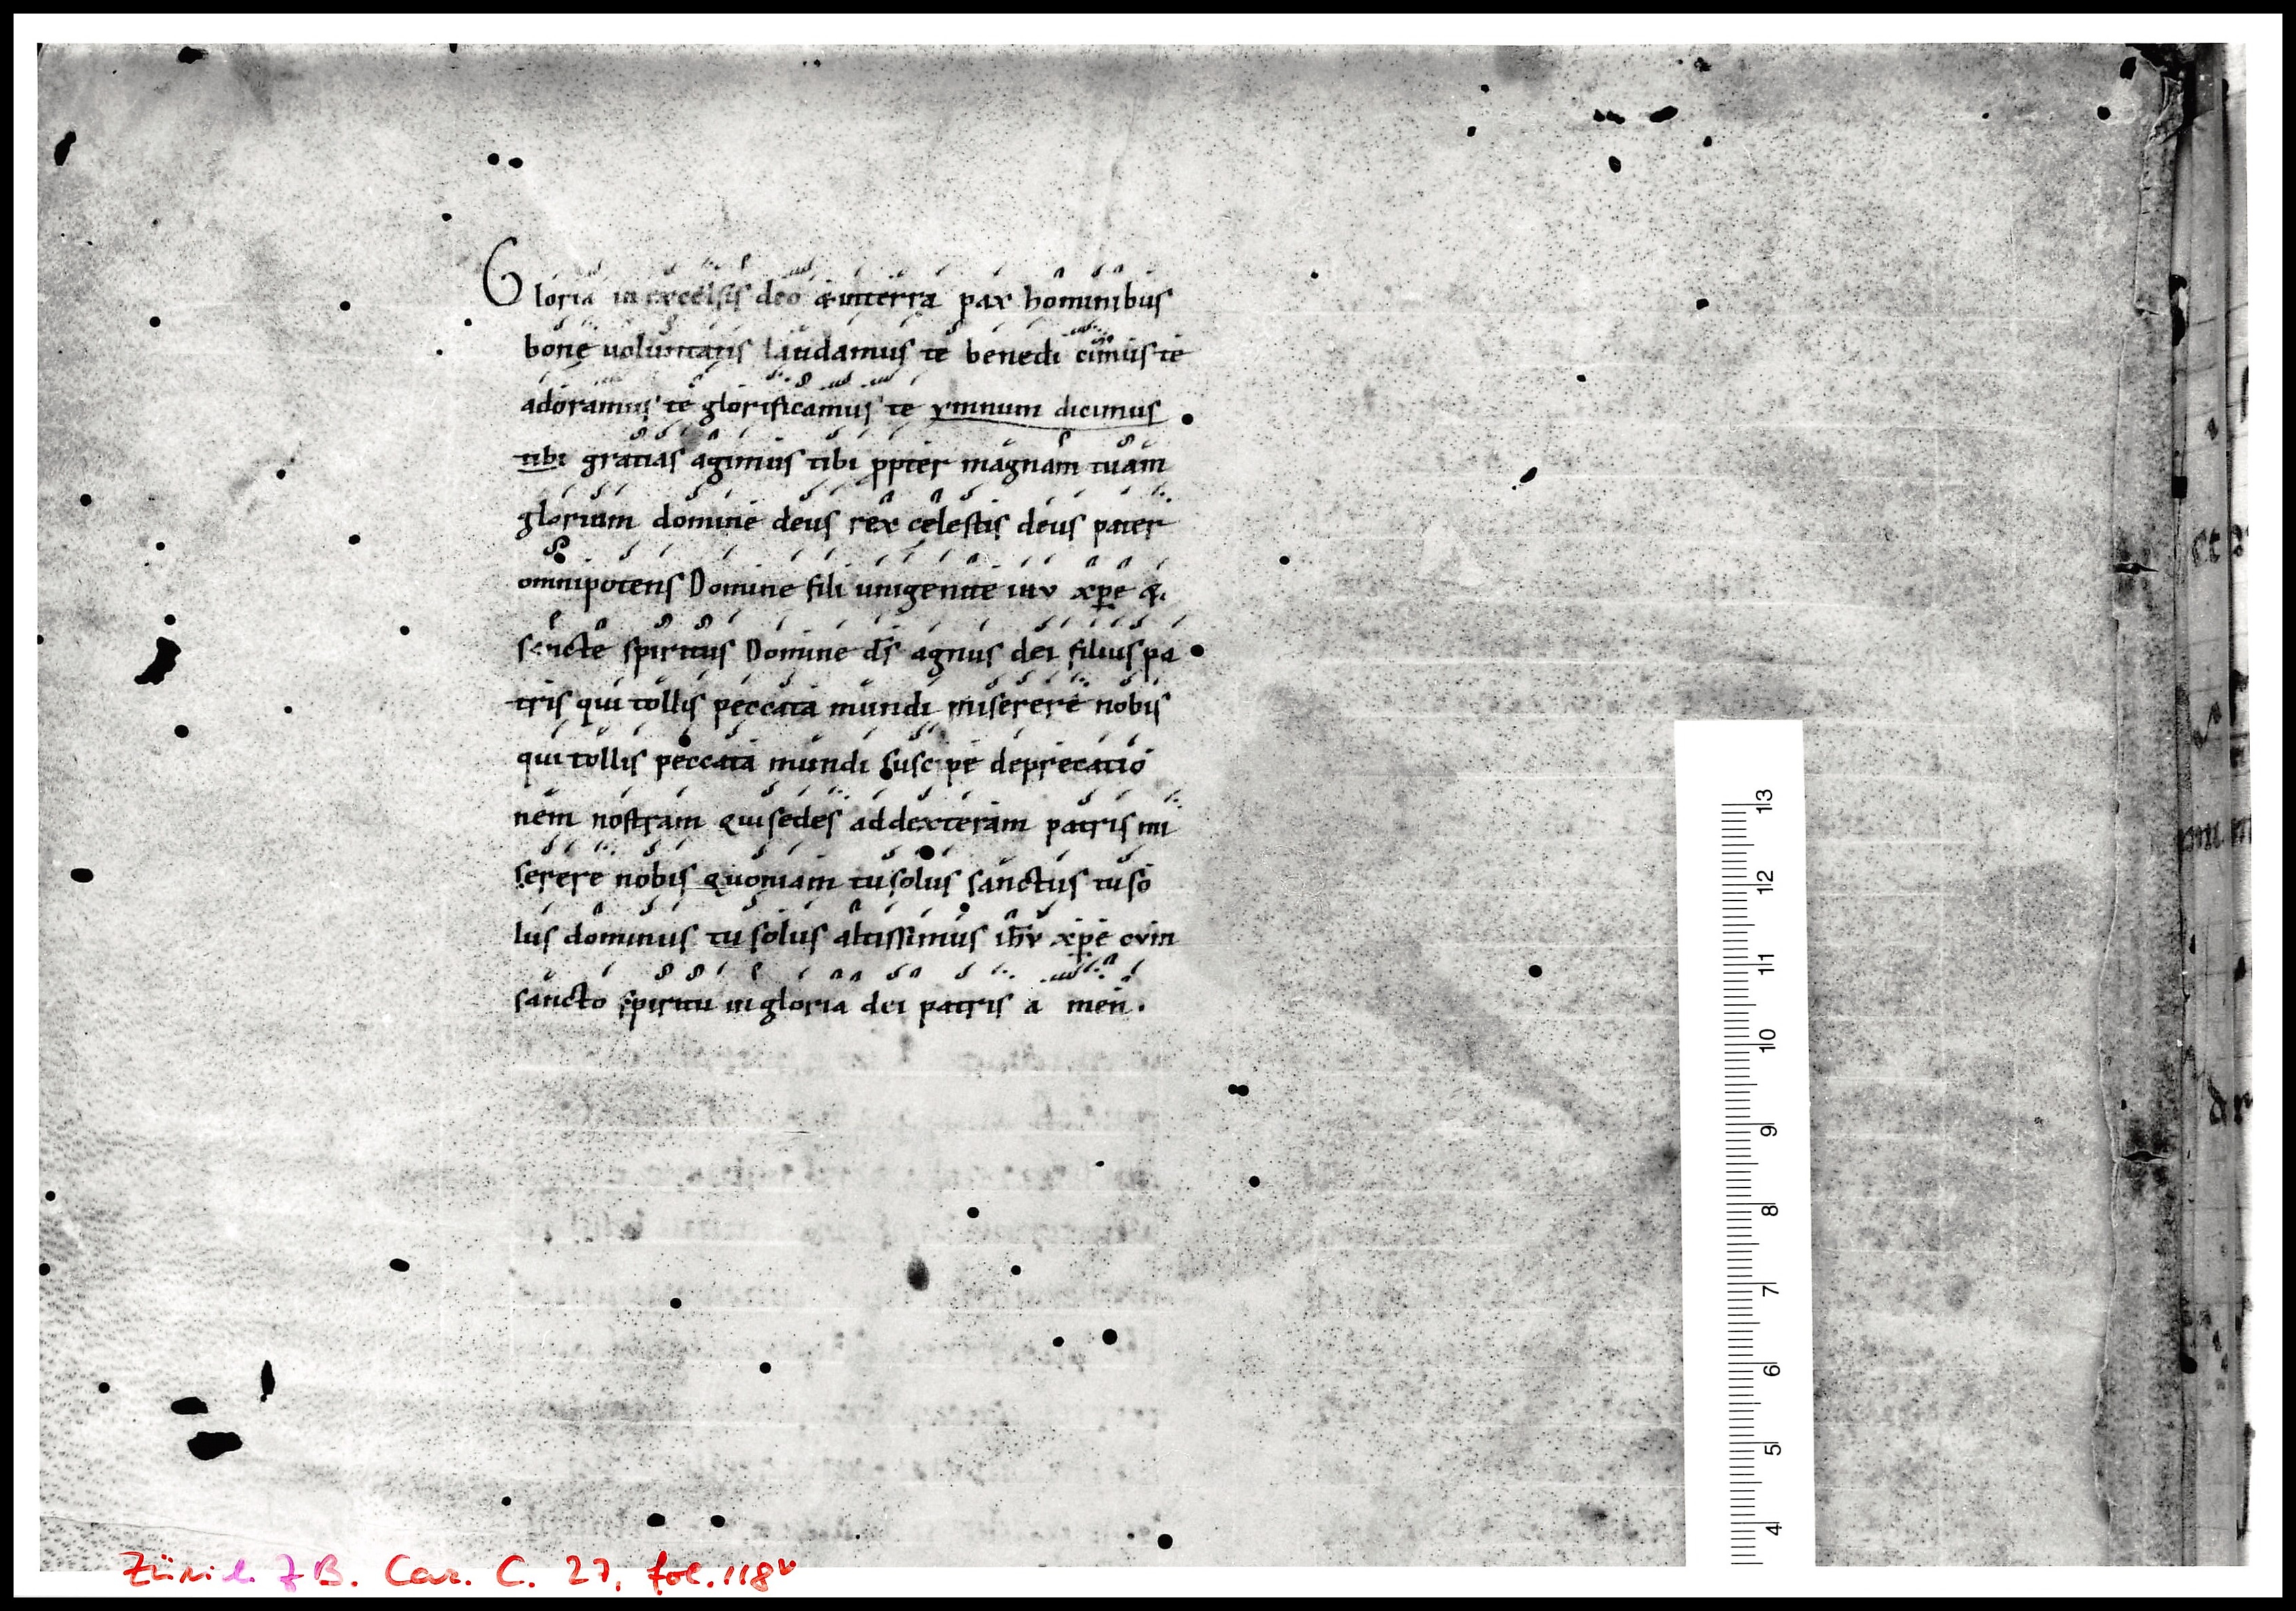 Gloria in excelsis deo & in terra pax hominibus
bonę uoluntatis laudamus te benedi cimus te
adoramus te glorificamus te ymnum dicimus
tibi gratias agimus tibi ppter magnam tuam
gloriam domine deus rex celestis deus pater
omnipotens Domine fili unigenite ihv xpe &
sancte spiritus Domine ds̄ agnus dei filius pa
tris qui tollis peccata mundi miserere nobis
qui tollis peccata mundi suscipe deprecatio
nem nostram Qui sedes ad dexteram patris mi
serere nobis quoniam tu solus sanctus tu so
lus dominus tu solus altissimus ih̄v xpe cvm
sancto spiritu in gloria dei patris a men.
13
12
11
10
9
8
7
6
5
4
Zürich ZB. Car. C. 27, fol. 118v